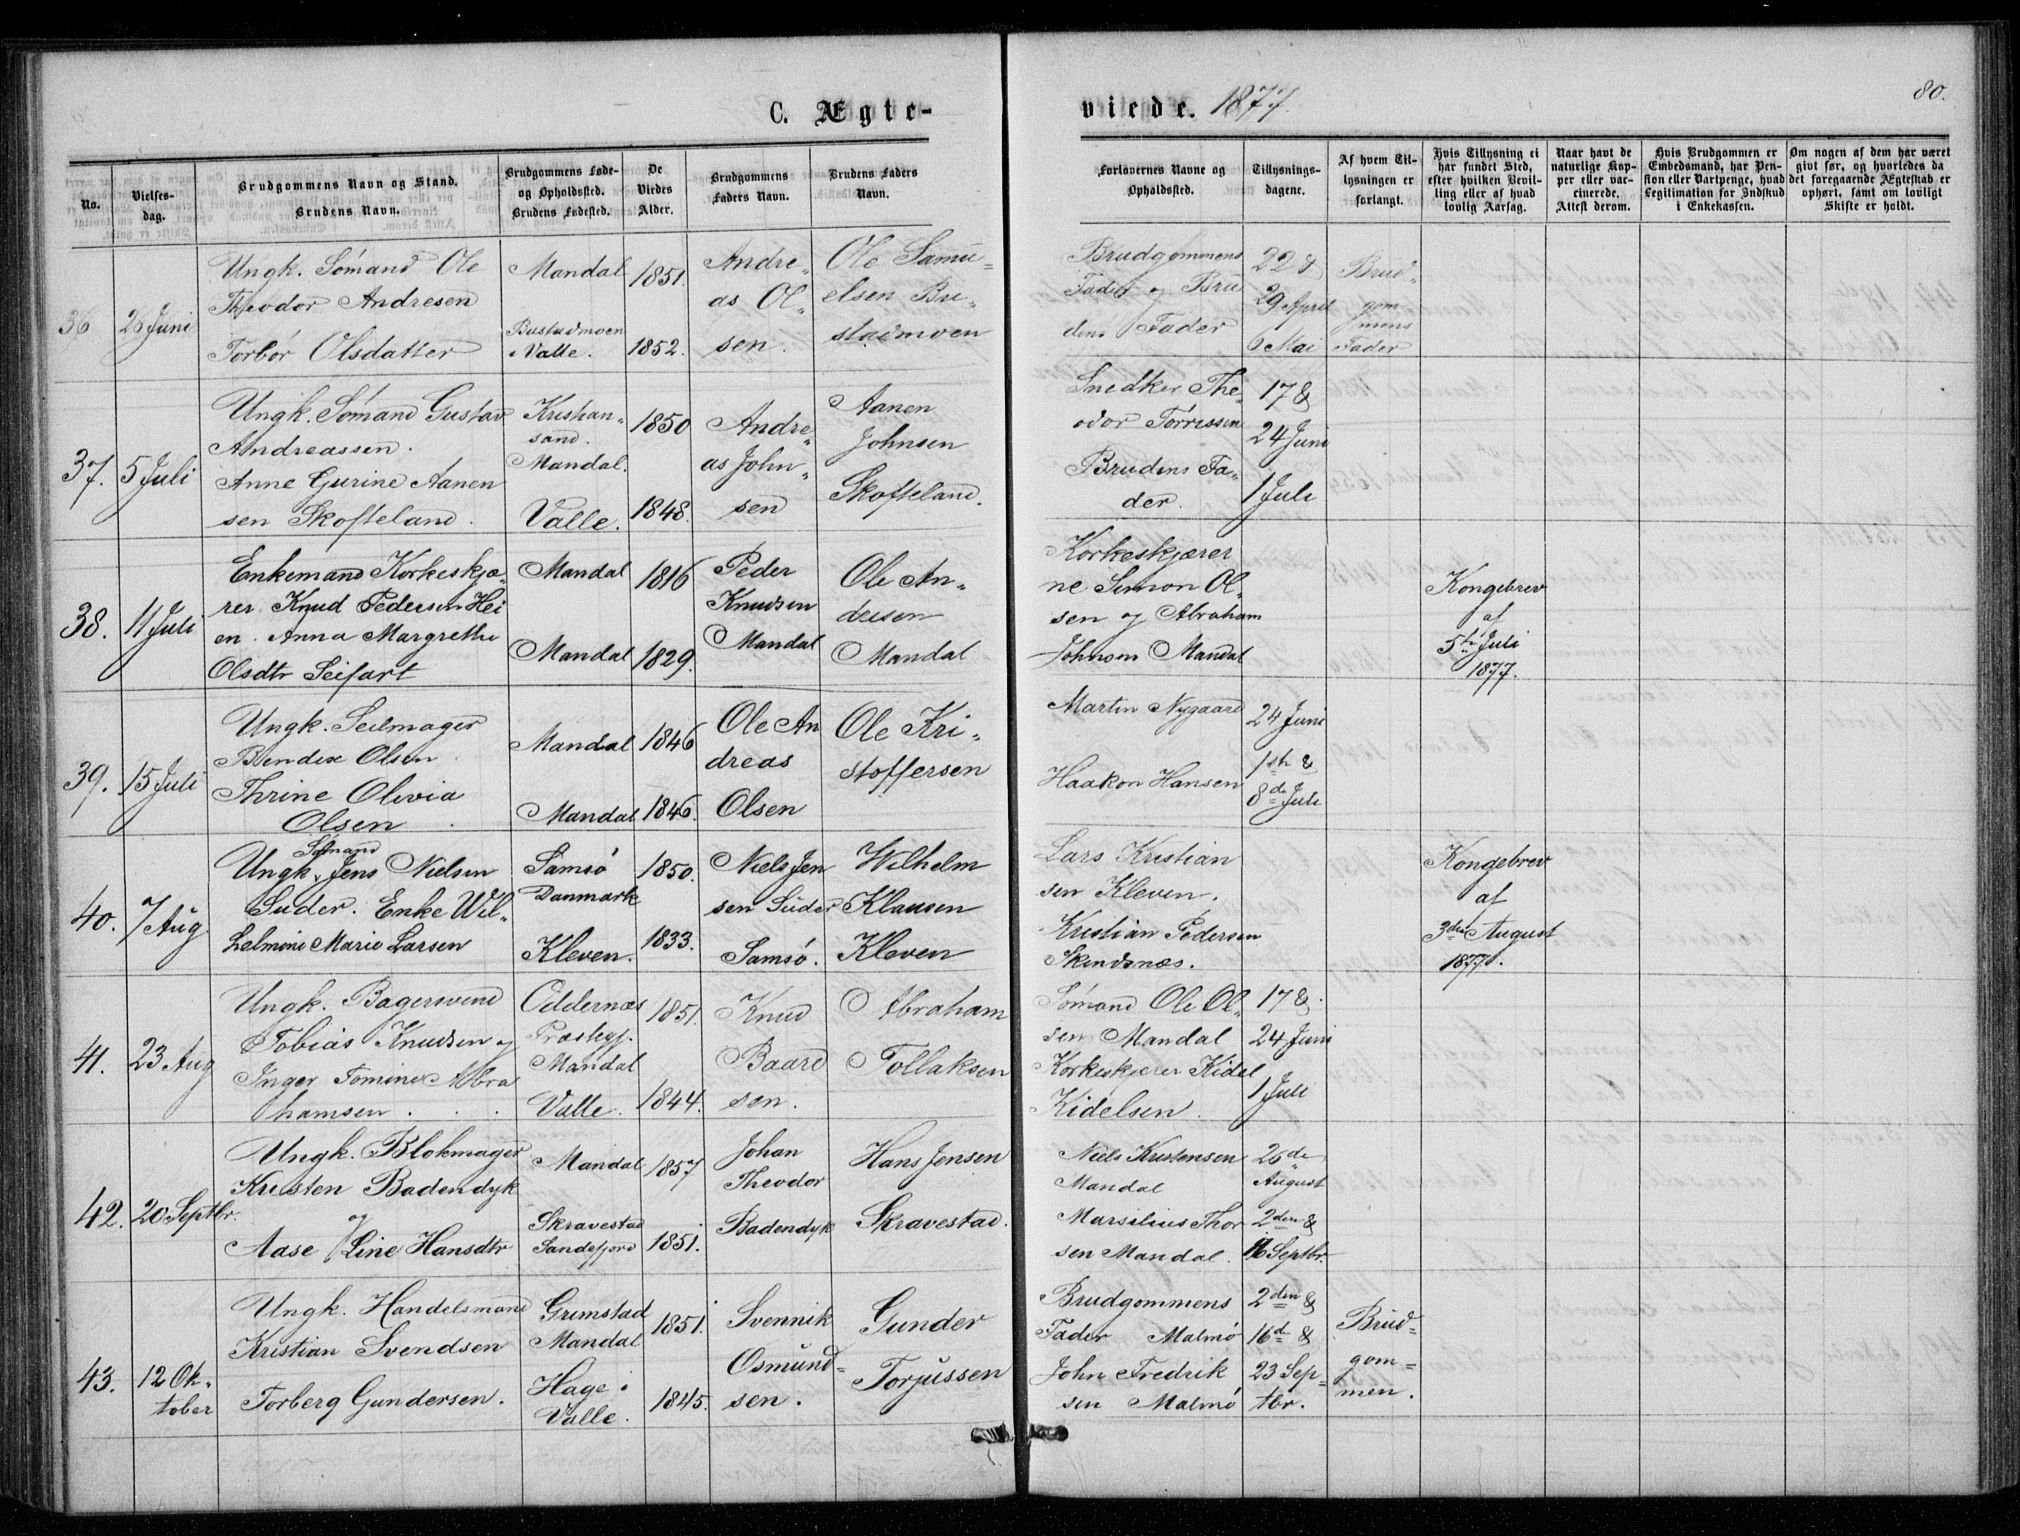 C. Ægte-
viede. 1877.
80.
No.
Vielses-
dag.
Brudgommens Navn og Stand.
Brudens Navn.
Brudgommens Føde-
og Opholdssted.
Brudens Fødested.
De
Viedes
Alder.
Brudgommens
Faders Navn.
Brudens Faders
Navn.
Forlovernes Navne og
Opholdssted.
Tillysnings-
dagene.
Af hvem Til-
lysningen er
forlangt.
Hvis Tillysning ei
har fundet Sted,
efter hvilken Bevil-
ling eller af hvad
lovlig Aarsag.
Naar havt de
naturlige Kop-
per eller vac-
cinerede.
Attest derom.
Hvis Brudgommen er
Embedsmand, har Pen-
sion eller Vartpenge, hvad
Legitimation for Indskud
i Enkekassen.
Om nogen af dem har været
givt før, og hvorledes da
det foregaaende Ægteskab er
ophørt, samt om lovligt
Skifte er holdt.
36
26 Juni
Ungk. Sömand Ole
Theodor Andresen
Torbör Olsdatter
Mandal
Bustadmoen
i Valle.
1851.
1852.
Andre„
as Ol„
sen.
Ole Samu„
elsen Bu„
stadmoen
Brudgommens
Fader og Bru
dens Fader
22 &
29 April
6 Mai
Brud„
gom
mens
Fader
37.
5 Juli
Ungk. Sömand Gustav
Andreassen.
Anne Gurine Aanen
sen Skofteland.
Kristian„
sand.
Mandal.
Valle.
1850
1848.
Andre„
as John„
sen
Aanen
Johnsen
Skofteland.
Snedker The„
odor Törrissen
Brudens Fa„
der.
17 &
24 Juni
1 Juli
38.
11 Juli
Enkemand Korkeskjæ„
rer Knud Pedersen Hei
en. Anna Margrethe
Olsdtr Seifart
Mandal
Mandal
1816
1829.
Peder
Knudsen
Mandal
Ole An„
dersen
Mandal
Korkeskjærer
ne Simon Ol„
sen og Abraham
Johnsen Mandal
Kongebrev
af
5te Juli
1877.
39.
15 Juli
Ungk. Seilmager
Bendix Olsen
Thrine Olivia
Olsen.
Mandal
Mandal
1846
1846.
Ole An
dreas
Olsen
Ole Kri„
stoffersen
Martin Nygaard
Haakon Hansen
24 Juni
1ste &
8de Juli
40.
7 Aug
Sömand
Ungk. Jens Nielsen
Suder. Enke Wil„
helmine Marie Larsen
Samsö
Danmark
Kleven.
1850.
1833.
Niels Jen
sen Suder
Samsö.
Wilhelm
Klausen
Kleven
Lars Kristian
sen Kleven.
Kristian Pedersen
Skindsnæs.
Kongebrev
af
3die August
1877.
41.
23 Aug
Ungk. Bagersvend
Tobias Knudsen og
Inger Tomine Abra
hamsen.
Oddernæs
Præstegj.
Mandal
Valle.
1851.
1844.
Knud
Baard
sen.
Abraham
Tollaksen
Sömand Ole Ol„
sen Mandal
Korkeskjærer Kidel
Kidelsen.
17 &
24 Juni
1 Juli
42.
20 Septbr.
Ungk. Blokmager
Kristen Badendyk
og
Aase Line Hansdtr
Mandal
Skravestad
Sandefjord
1857
1851.
Johan
Theodor
Badendyk
Hans Jensen
Skravestad.
Niels Kristensen
Mandal
Marsilius Thor
sen Mandal.
26de
August
2den &
16 Septbr.
43.
12 Ok„
tober
Ungk. Handelsmand
Kristian Svendsen
Torberg Gundersen.
Grimstad
Mandal
Hage i
Valle.
1851.
1845.
Svennik
Osmund„
sen.
Gunder
Torjussen
Brudgommens
Fader Malmö
John Fredrik
sen Malmö
2den &
16de &
23 Sep„
tbr.
Brud„
gom„
men.